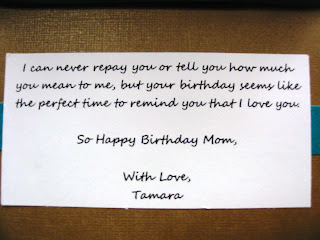 I can never repay you or tell you how much
you mean to me, but your birthday seems like
the perfect time to remind you that I love you.
So Happy Birthday Mom,
With Love,
Tamara